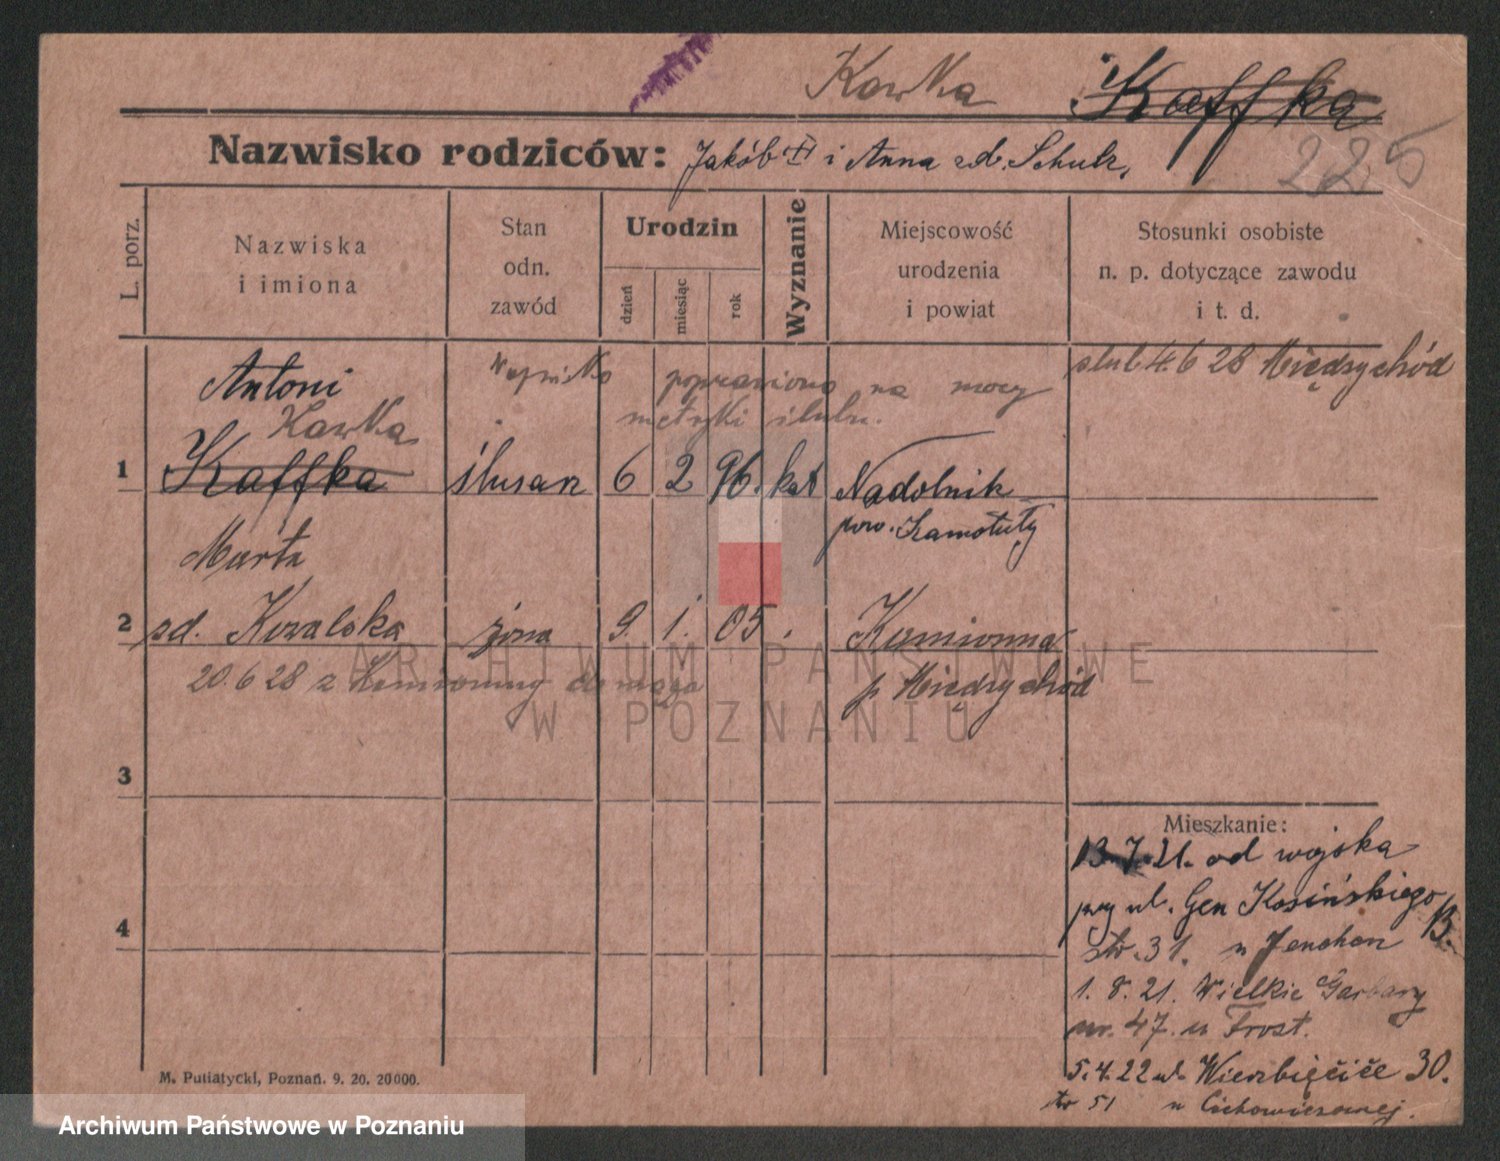 Kawka Kaffka
225
Nazwisko rodziców: Jakób i Anna zd. Schulz,
L. porz.
Nazwiska
i imiona
Stan
odn.
zawód
Urodzin
dzień
miesiąc
rok
Wyznanie
Miejscowość
urodzenia
i powiat
Stosunki osobiste
n. p. dotyczące zawodu
i t. d.
Antoni
Kawka
1 Kaffka ślusarz 6 2 96. kat Nadolnik
pow. Szamotuły
poprawiono na mocy
metryki ślubu.
ślub 4.6 28 Międzychód
Marta
2 zd. Kowalska żona 9. 1. 05. Kamionna
20.6 28 z Kamionny do męża
p Międzychód
3
4
Mieszkanie:
13.7.21. od wojska
przy ul. Gen Kosińskiego
31. u
1. 8. 21. Wielkie Garbary
nr. 47. u Frost.
5.4.22 ul. Wierzbięcice 30.
51 u
M. Putiatycki, Poznań. 9. 20. 20000.
ARCHIWUM PAŃSTWOWE
W POZNANIU
Archiwum Państwowe w Poznaniu